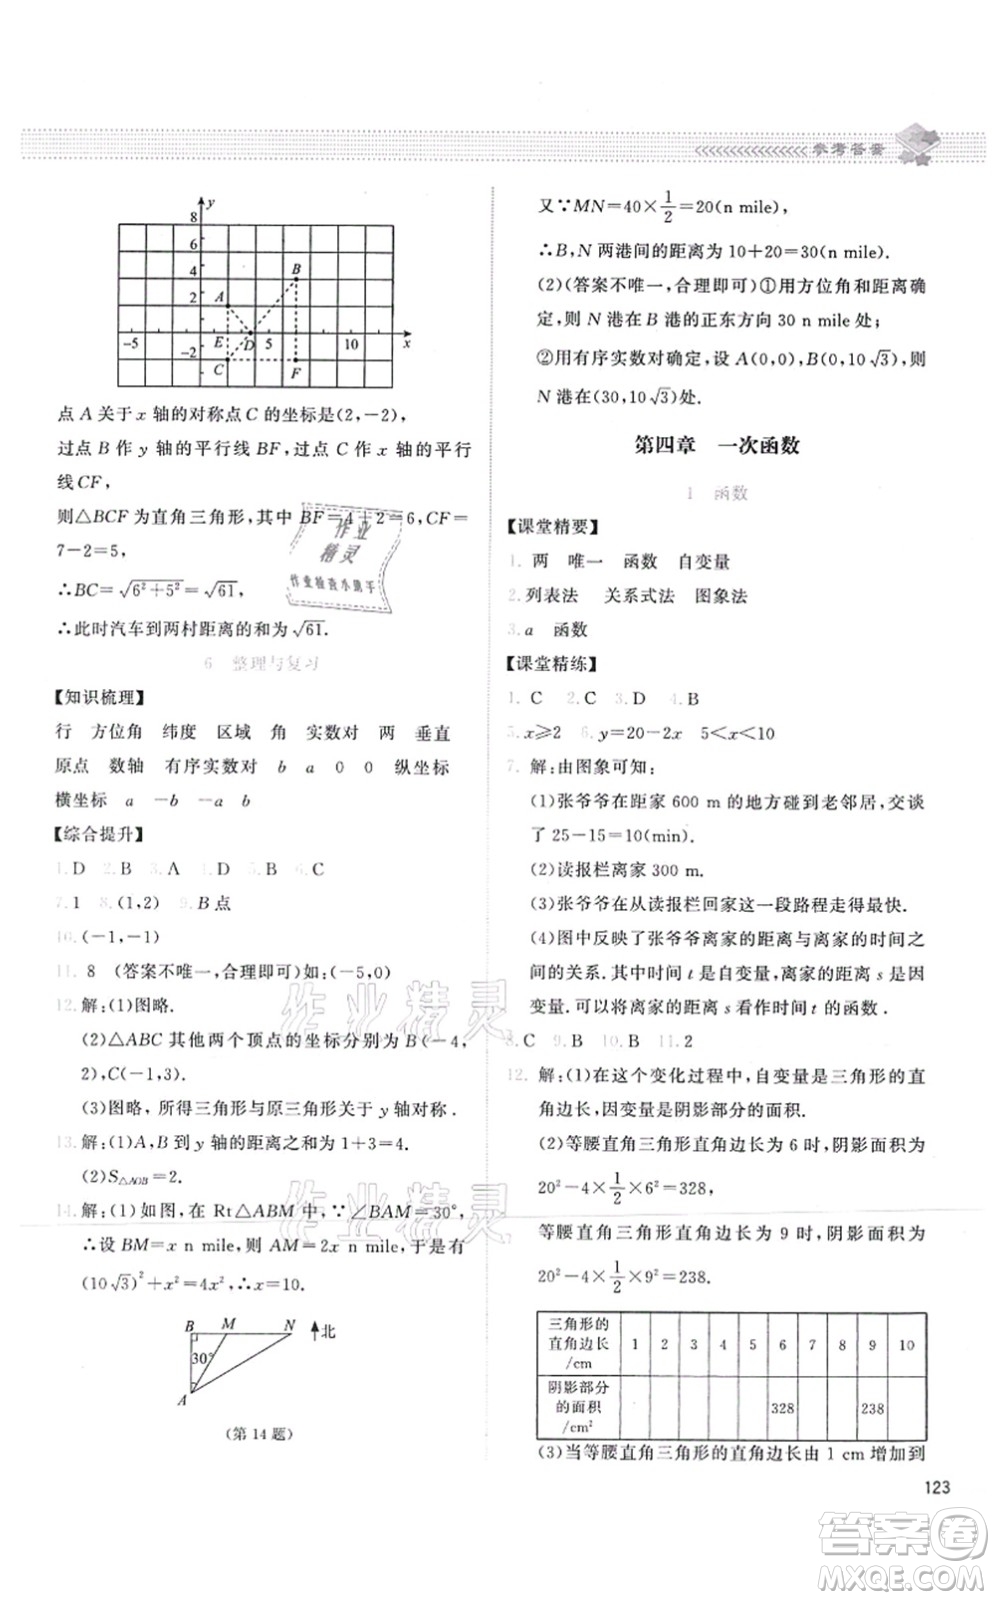 参考答案
y
8
6
4
2
-2
-5
5
10
x
A
B
E
D
C
F
点 A 关于 x 轴的对称点 C 的坐标是(2,-2),
过点 B 作 y 轴的平行线 BF,过点 C 作 x 轴的平行
线 CF,
则△BCF 为直角三角形,其中 BF=4+2=6,CF=
7-2=5,
∴BC=√(6²+5²)=√61,
∴此时汽车到两村距离的和为√61.
6 整理与复习
【知识梳理】
行 方位角 纬度 区域 角 实数对 两 垂直
原点 数轴 有序实数对 b a 0 0 纵坐标
横坐标 a -b -a b
【综合提升】
1.D 2.B 3.A 4.D 5.B 6.C
7.1 8.(1,2) 9.B 点
10.(-1,-1)
11. 8 (答案不唯一,合理即可)如:(-5,0)
12.解:(1)图略.
(2)△ABC 其他两个顶点的坐标分别为 B(-4,
2),C(-1,3).
(3)图略,所得三角形与原三角形关于 y 轴对称.
13.解:(1)A,B 到 y 轴的距离之和为 1+3=4.
(2)S△AOB=2.
14.解:(1)如图,在 Rt△ABM 中,∵∠BAM=30°,
∴设 BM=x n mile,则 AM=2x n mile,于是有
(10√3)²+x²=4x²,∴x=10.
B M N 北
30°
A
(第 14 题)
又∵MN=40×1/2=20(n mile),
∴B,N 两港间的距离为 10+20=30(n mile).
(2)(答案不唯一,合理即可)①用方位角和距离确
定,则 N 港在 B 港的正东方向 30 n mile 处;
②用有序实数对确定,设 A(0,0),B(0,10√3),则
N 港在(30,10√3)处.
第四章 一次函数
1 函数
【课堂精要】
1.两 唯一 函数 自变量
2.列表法 关系式法 图象法
3.a 函数
【课堂精练】
1.C 2.C 3.C 4.B
5.x≥2 6.y=20-2x 5<x<10
7.解:由图象可知:
(1)张爷爷在距家 600 m 的地方碰到老邻居,交谈
了 25-15=10(min).
(2)读报栏离家 300 m.
(3)张爷爷在从读报栏回家这一段路程走得最快.
(4)图中反映了张爷爷离家的距离与离家的时间之
间的关系.其中时间 t 是自变量,离家的距离 s 是因
变量.可以将离家的距离 s 看作时间 t 的函数.
8.C 9.B 10.B 11.2
12.解:(1)在这个变化过程中,自变量是三角形的直
角边长,因变量是阴影部分的面积.
(2)等腰直角三角形直角边长为 6 时,阴影面积为
20²-4×1/2×6²=328,
等腰直角三角形直角边长为 9 时,阴影面积为
20²-4×1/2×9²=238.
三角形的直角边长/cm 1 2 3 4 5 6 7 8 9 10
阴影部分的面积/cm² 328 238
(3)当等腰直角三角形的直角边长由 1 cm 增加到
123
作业精灵
作业检查小助手
作业精灵
作业精灵
答案卷
MXQE.COM